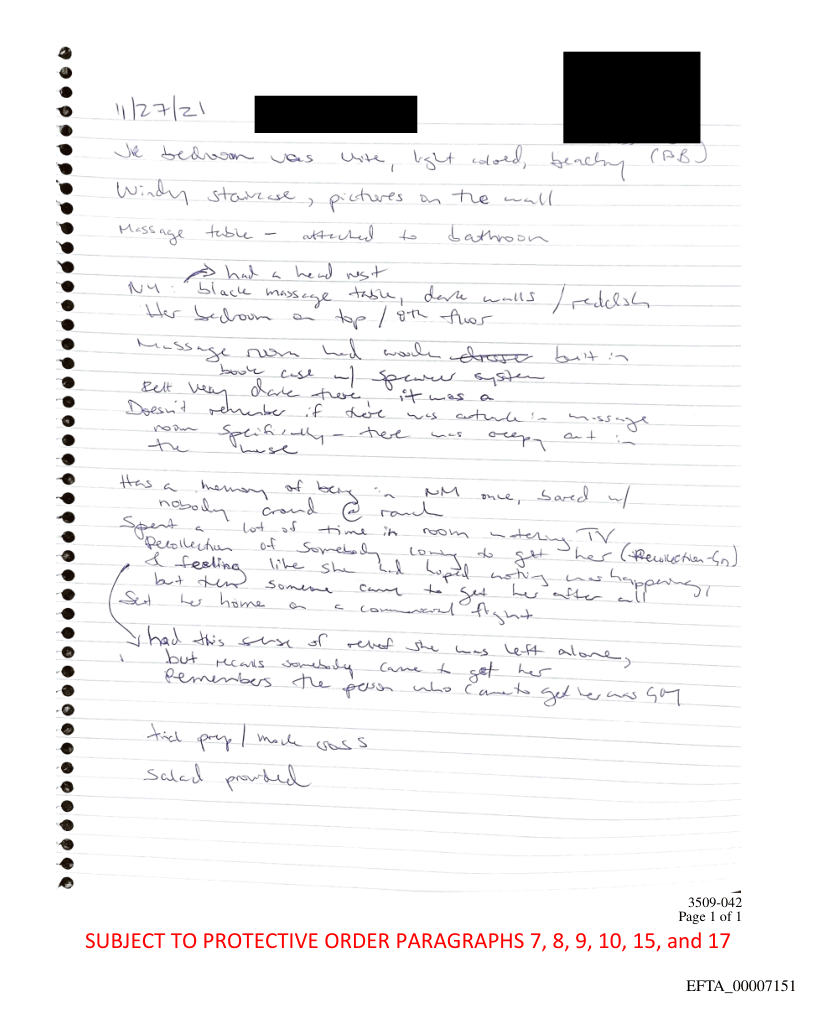 11/27/21
JE bedroom was white, light colored, beachy (PB)
Windy staircase, pictures on the wall
Massage table - attached to bathroom
→ had a head rest
NY: black massage table, dark walls / reddish
Her bedroom on top / 8th floor
Massage room had wooden built in
book case w/ speaker system
Felt very dark there, it was a
Doesn't remember if there was artwork in massage
room specifically - there was creepy art in
the house
Has a memory of being in NM once, bored w/
nobody around @ ranch
Spent a lot of time in room watching TV
Recollection of somebody coming to get her
feeling like she had hoped nothing was happening,
but then someone came to get her after all
Sent her home on a commercial flight
had this sense of relief she was left alone,
but recalls somebody came to get her
Remembers the person who came to get her was GM
trial prep / mock cross
Salad provided
3509-042
Page 1 of 1
SUBJECT TO PROTECTIVE ORDER PARAGRAPHS 7, 8, 9, 10, 15, and 17
EFTA_00007151